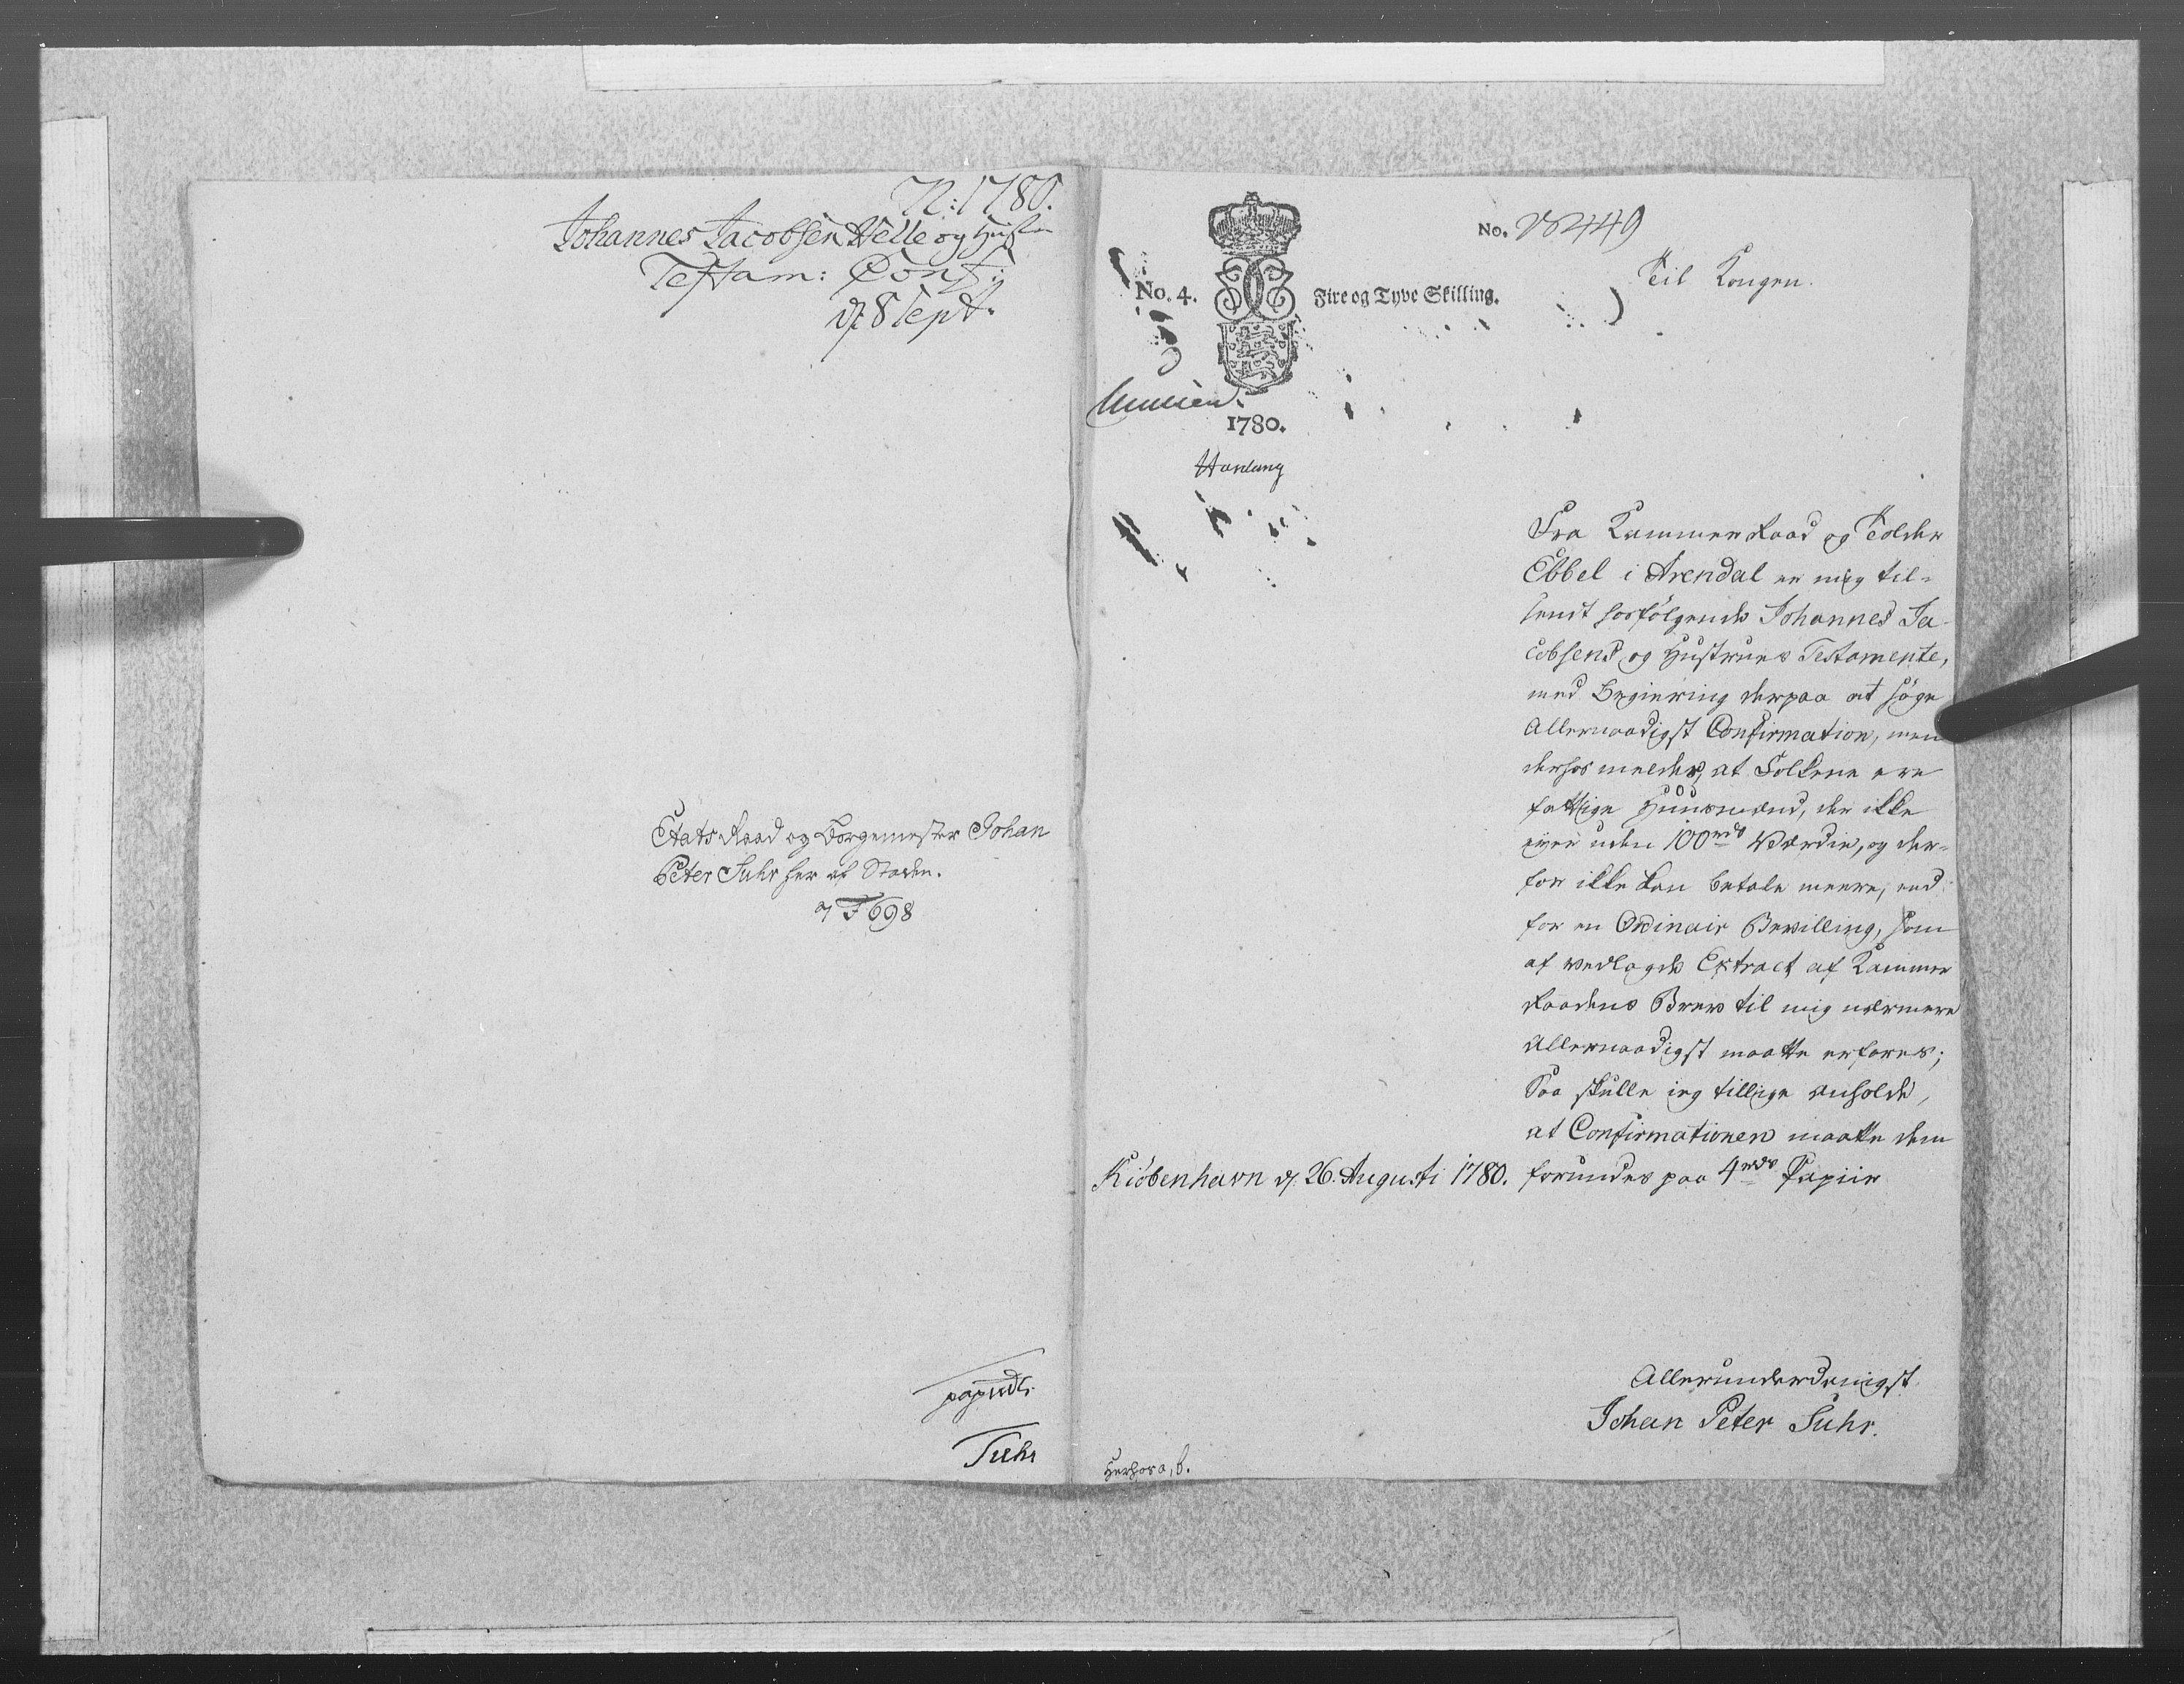 N: 1780.
Johannes Jacobsen Velle og Hust
Testam: Conf:
d. 8 Sept.
Etats Raad og Borgemester Johan
Peter Suhr her af Staden.
F 698
Suhr
No. 25449
Til Kongen.
No. 4. Fire og Tyve Skilling.
1780.
Fra Kammer Raad og Tolder
Ebbel i Arendal er mig til-
sendt hosfølgende Johannes Ja-
cobsens og Hustrues Testamente,
med Begiering derpaa at søge
Allernaadigst Confirmation, men
derhos melder, at Folkene ere
fattige Huusmænd, der ikke
eyer uden 100 rd Værdie, og der-
for ikke kan betale meere, end
for en Ordinair Bevilling, som
af vedlagde Extract af Kammer
Raadens Brev til mig nærmere
Allernaadigst maatte erfares;
Saa skulle ieg tillige anholde,
at Confirmationen maatte dem
Kiöbenhavn d. 26. Augusti 1780. forundes paa 4 rds Papiir
Allerunderdanigst
Johan Peter Suhr.
Herhos a, b.